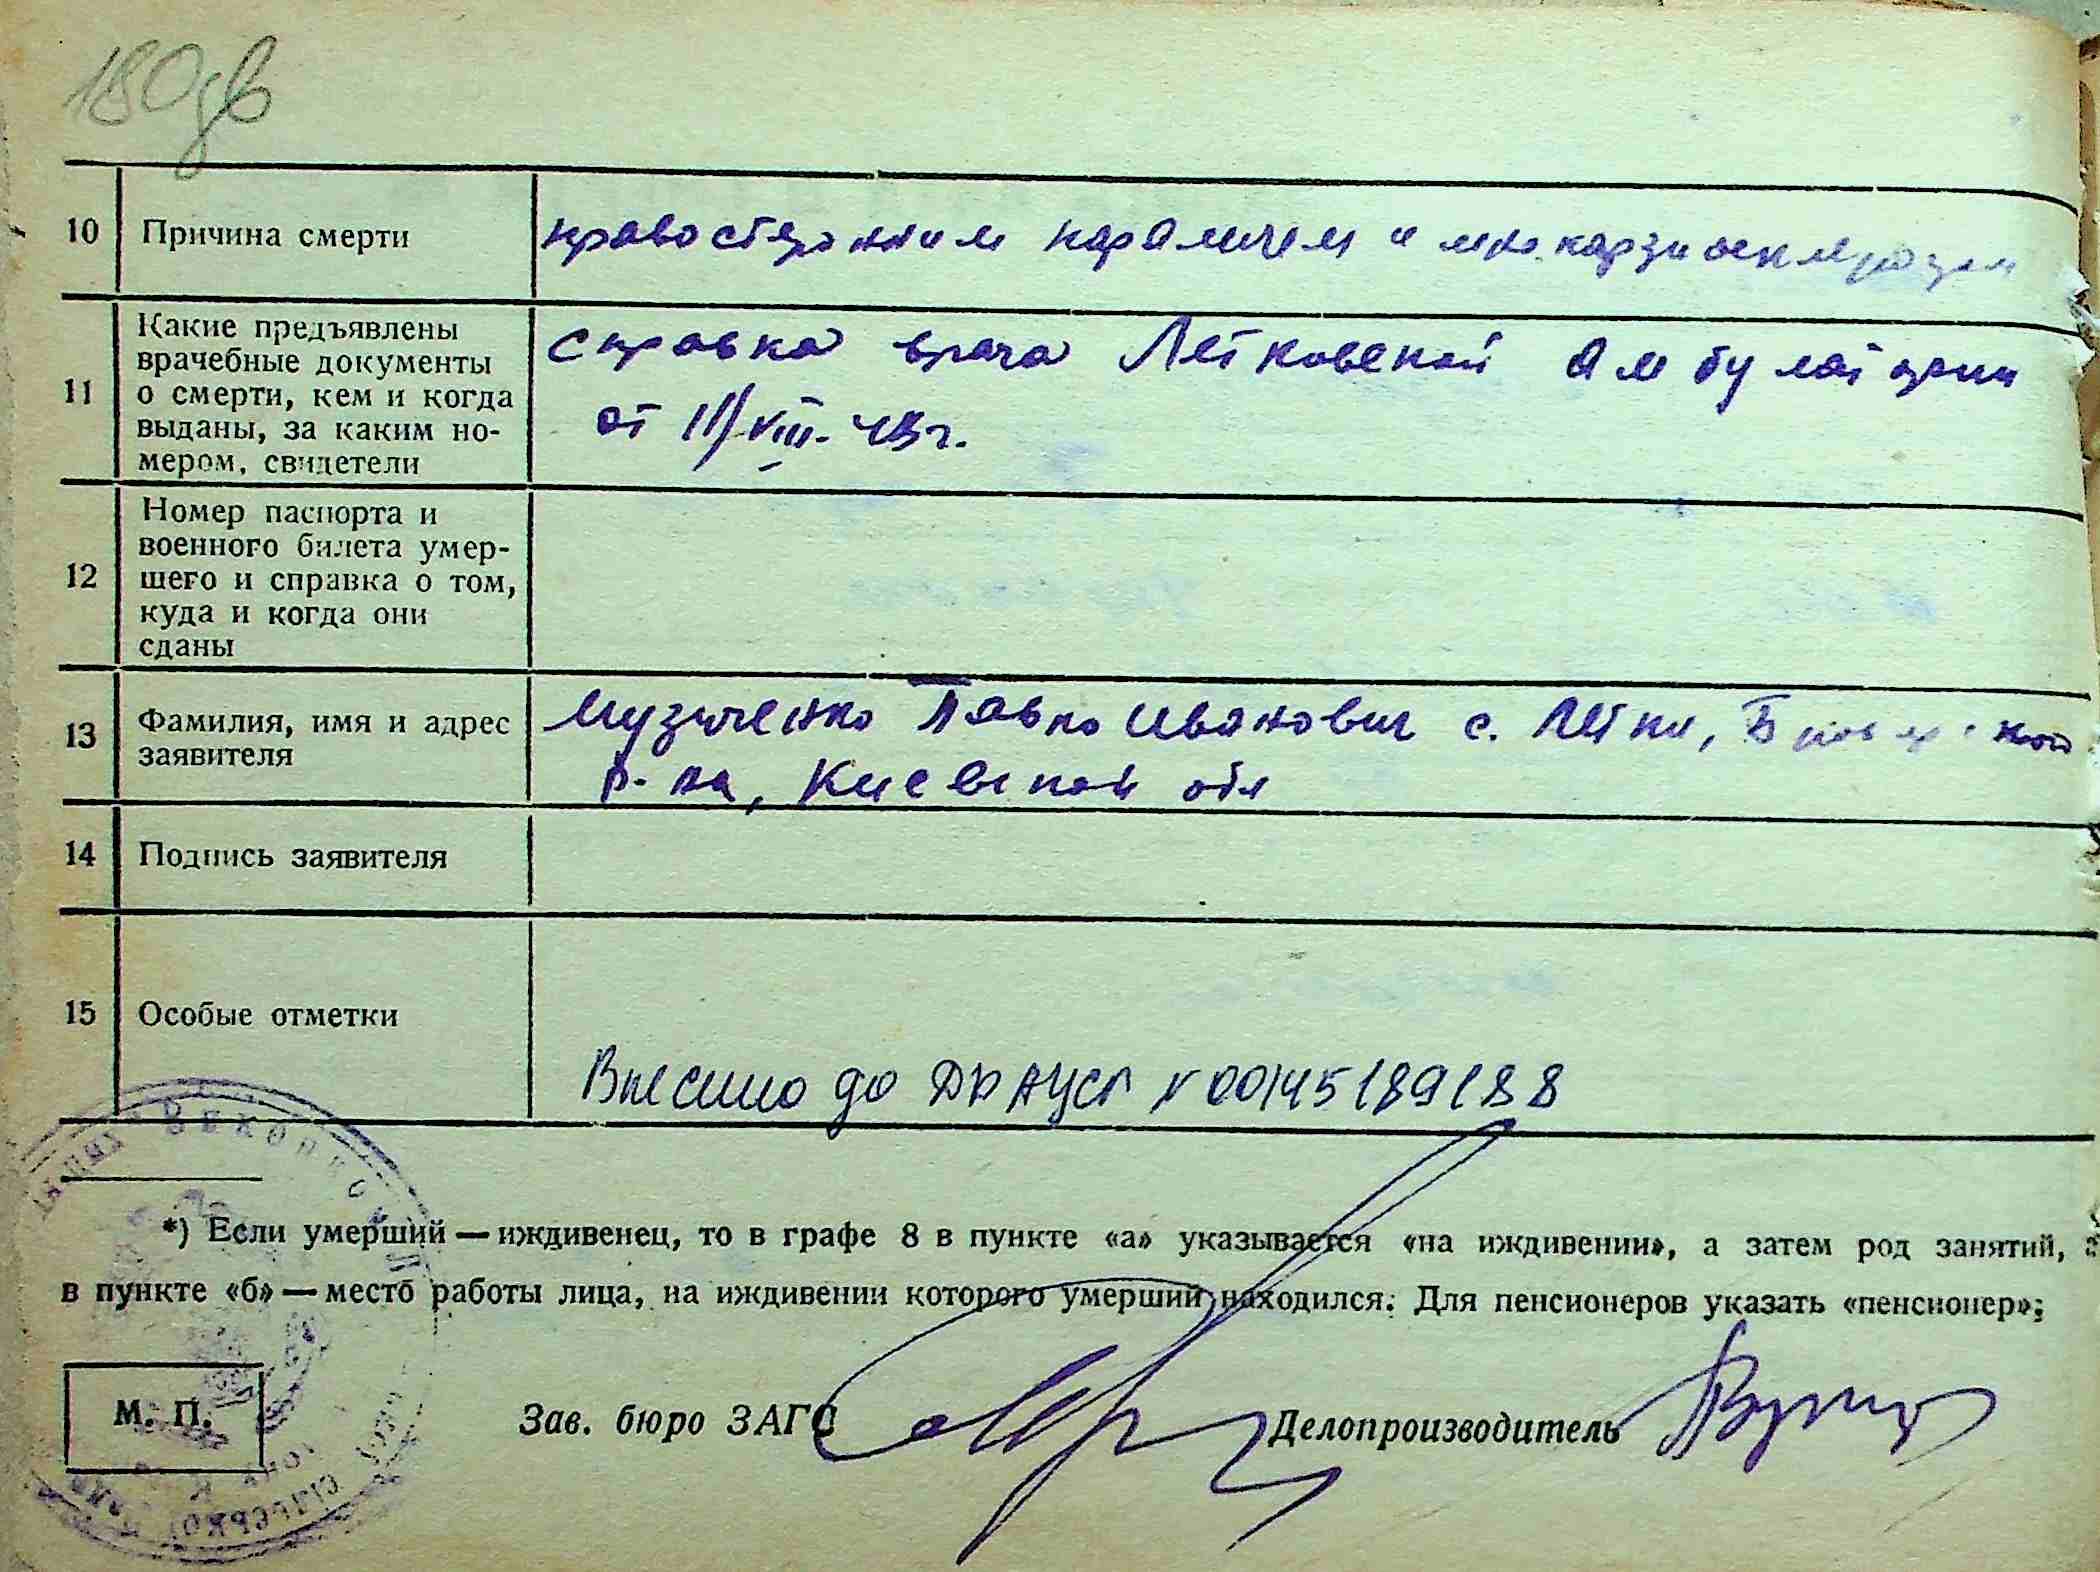 180зв
10 Причина смерти правосторонним параличем и миокардиосклерозом
11 Какие предъявлены врачебные документы о смерти, кем и когда выданы, за каким но-
мером, свидетели
справка врача Летковской Амбулатории
от 11/VIII-43г.
12 Номер паспорта и
военного билета умер-
шего и справка о том,
куда и когда они
сданы
13 Фамилия, имя и адрес
заявителя
Музиченко Павло Иванович с. Летки, Броварского
р-на, Киевской обл
14 Подпись заявителя
15 Особые отметки
Внесено до ДРАЦСГ N 00145189188
*) Если умерший — иждивенец, то в графе 8 в пункте «а» указывается «на иждивении», а затем род занятий,
в пункте «б» — место работы лица, на иждивении которого умерший находился. Для пенсионеров указать «пенсионер»;
М. П. Зав. бюро ЗАГС Делопроизводитель